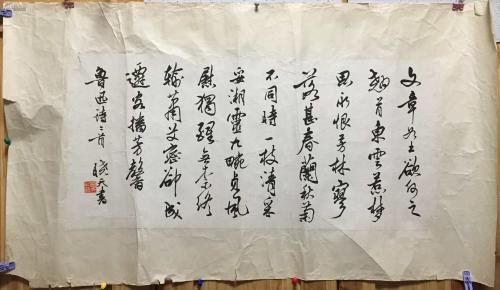 文章如土欲何之
翘首东云惹梦
思所恨芳林寥
落甚春兰秋菊
不同时一枝清采
妥湘灵九畹贞风
慰独醒无奈终
输萧艾密却成
迁客播芳馨
鲁迅诗二首 晓天书